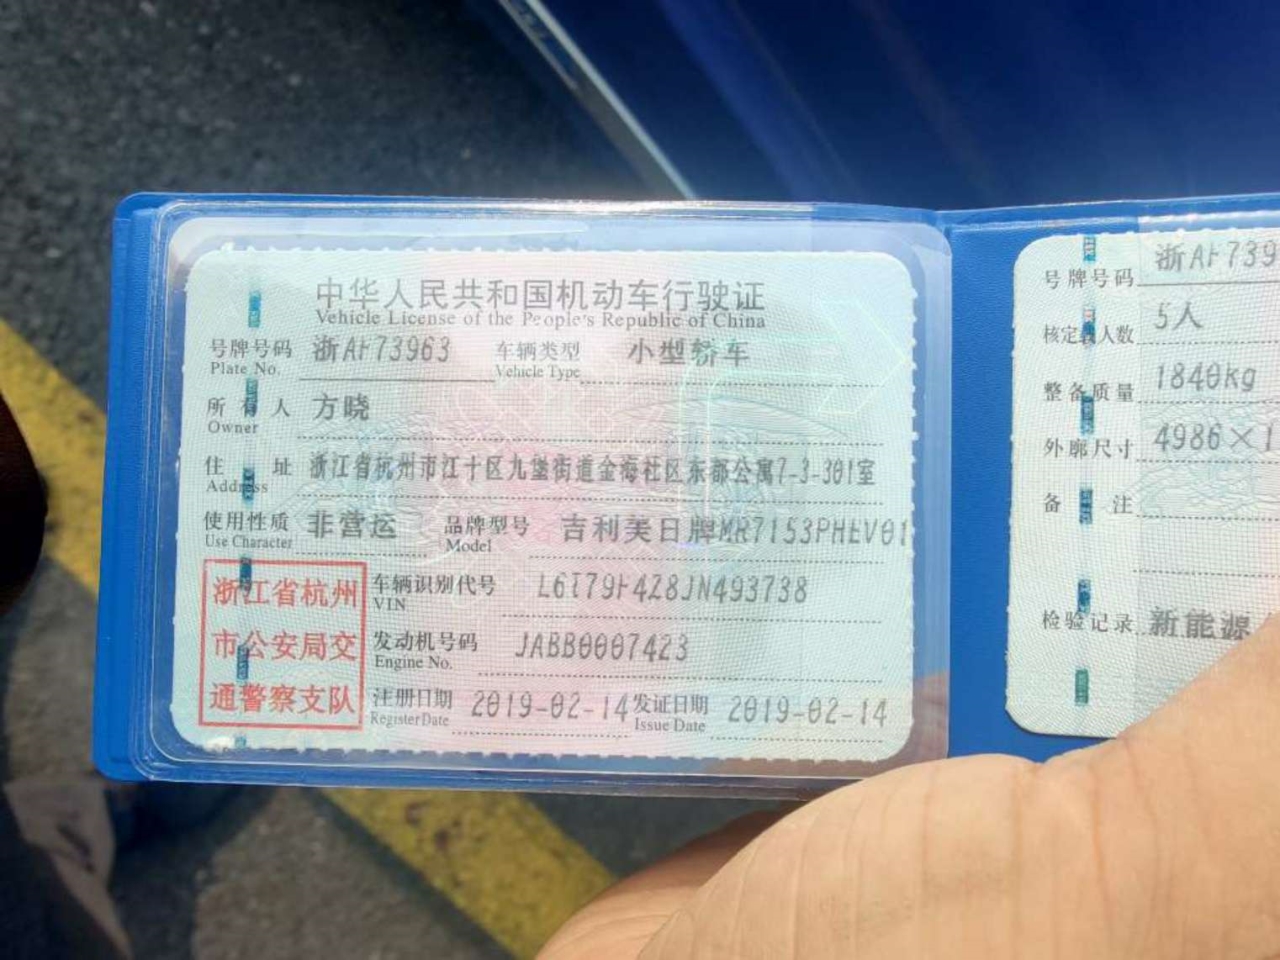 中华人民共和国机动车行驶证
Vehicle License of the People's Republic of China
号牌号码 浙AF73963 车辆类型 小型轿车
Plate No. Vehicle Type
所有人 方晓
Owner
住址 浙江省杭州市江干区九堡街道金海社区东都公寓7-3-301室
Address
使用性质 非营运 品牌型号 吉利美日牌MR7153PHEV01
Use Character Model
浙江省杭州
市公安局交
通警察支队
车辆识别代号 L6T79F4Z8JN493738
VIN
发动机号码 JABB0007423
Engine No.
注册日期 2019-02-14 发证日期 2019-02-14
Register Date Issue Date
号牌号码 浙AF739
核定载人数 5人
整备质量 1840kg
外廓尺寸 4986×1
备注
检验记录 新能源